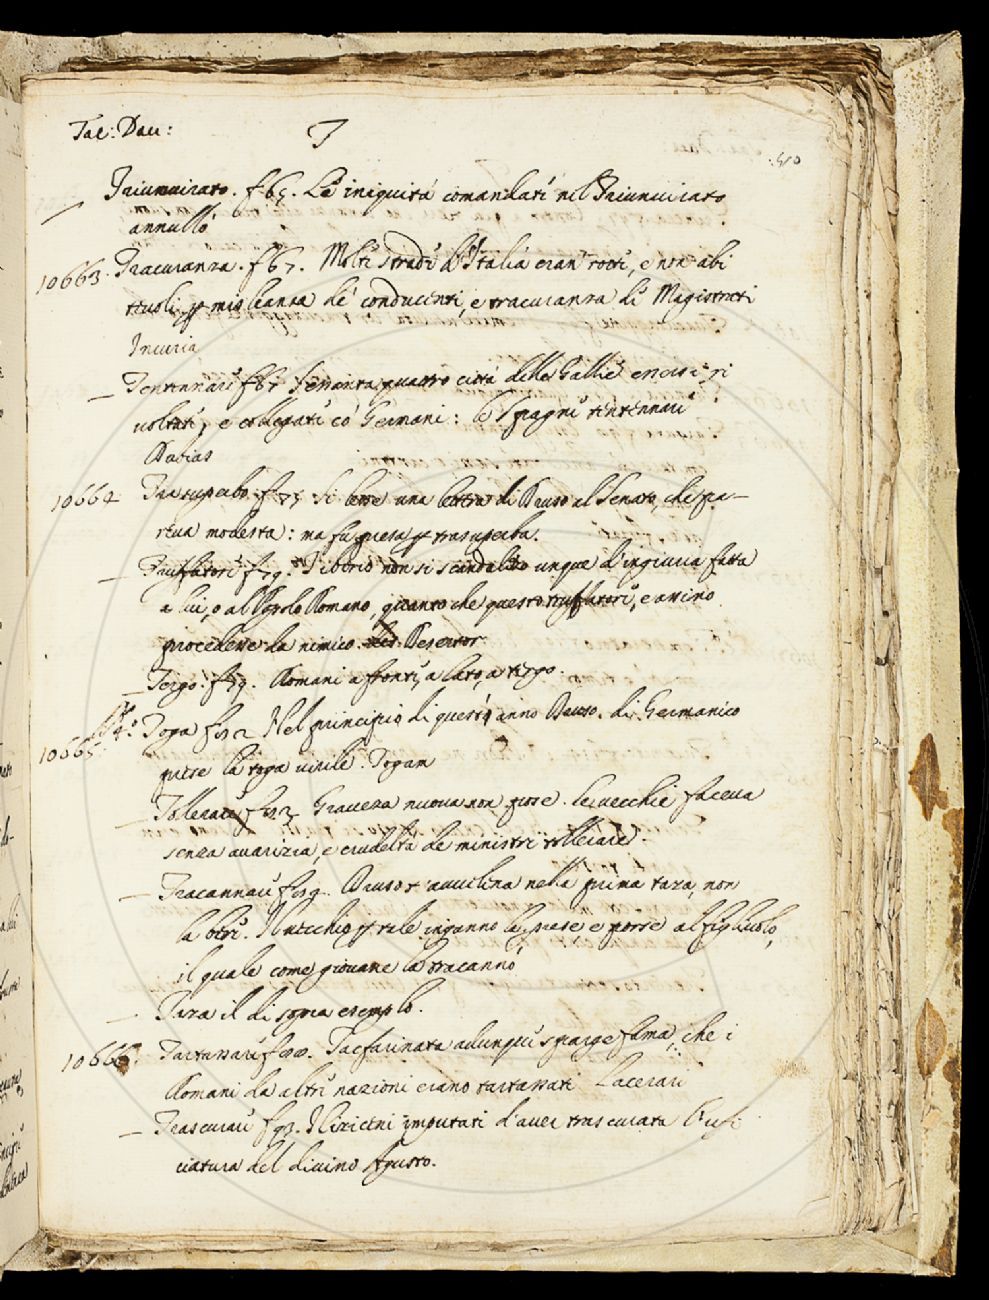 Tac: Dav:
T
Triumvirato. f 65. Le iniquità comandati nel Triumvirato
annullò
10663. Tracuranza. f 67. Molti stradi d'Italia eran rotti, e non abi
tevoli, p misleanza de' conducenti, e tracuranza di Magistrati
Incuria
Tentennari f 67 Sessanta quattro città delle Gallie eransi ri
voltati, e collegati cò Germani: le Spagni tentennari
Dubias
10664 Trasuperbo. f 75 Si lesse una lettra di Druso al Senato, che pa-
reva modesta: ma fu presa p trasuperba.
Truffatori f 79. Tiberio non si scandalizò unqua d'ingiuria fatta
a lui, o al Popolo Romano, quanto che questo truffatori, e assino
procedesse da nimico. Desertor
Tergo. f 79. Romani a fronti, a lato, a tergo.
10665. Toga f 82 Nel principio di questo anno Druso. di Germanico
prese la toga virile. Togam
Tolleravi f 82 Graveza nuova non pose. le vecchie faceva
senza avarizia, e crudeltà de ministri tolleiare.
Tracannari f 89. Druso avvelina nella prima taza, non
la bevi. Il vecchio p tale inganno la prese e porse al figliuolo,
il quale come giovane la tracannò
Taza il di sopra esemplo.
10666. Tartassari f 88. Tacfarinata adunqui sparge fama, che i
Romani da altri nazioni erano tartassati Lacerari
Trascurari f 93. I Ciziceni imputati d'aver trascurata l'ufi
ciatura del divino Agusto.